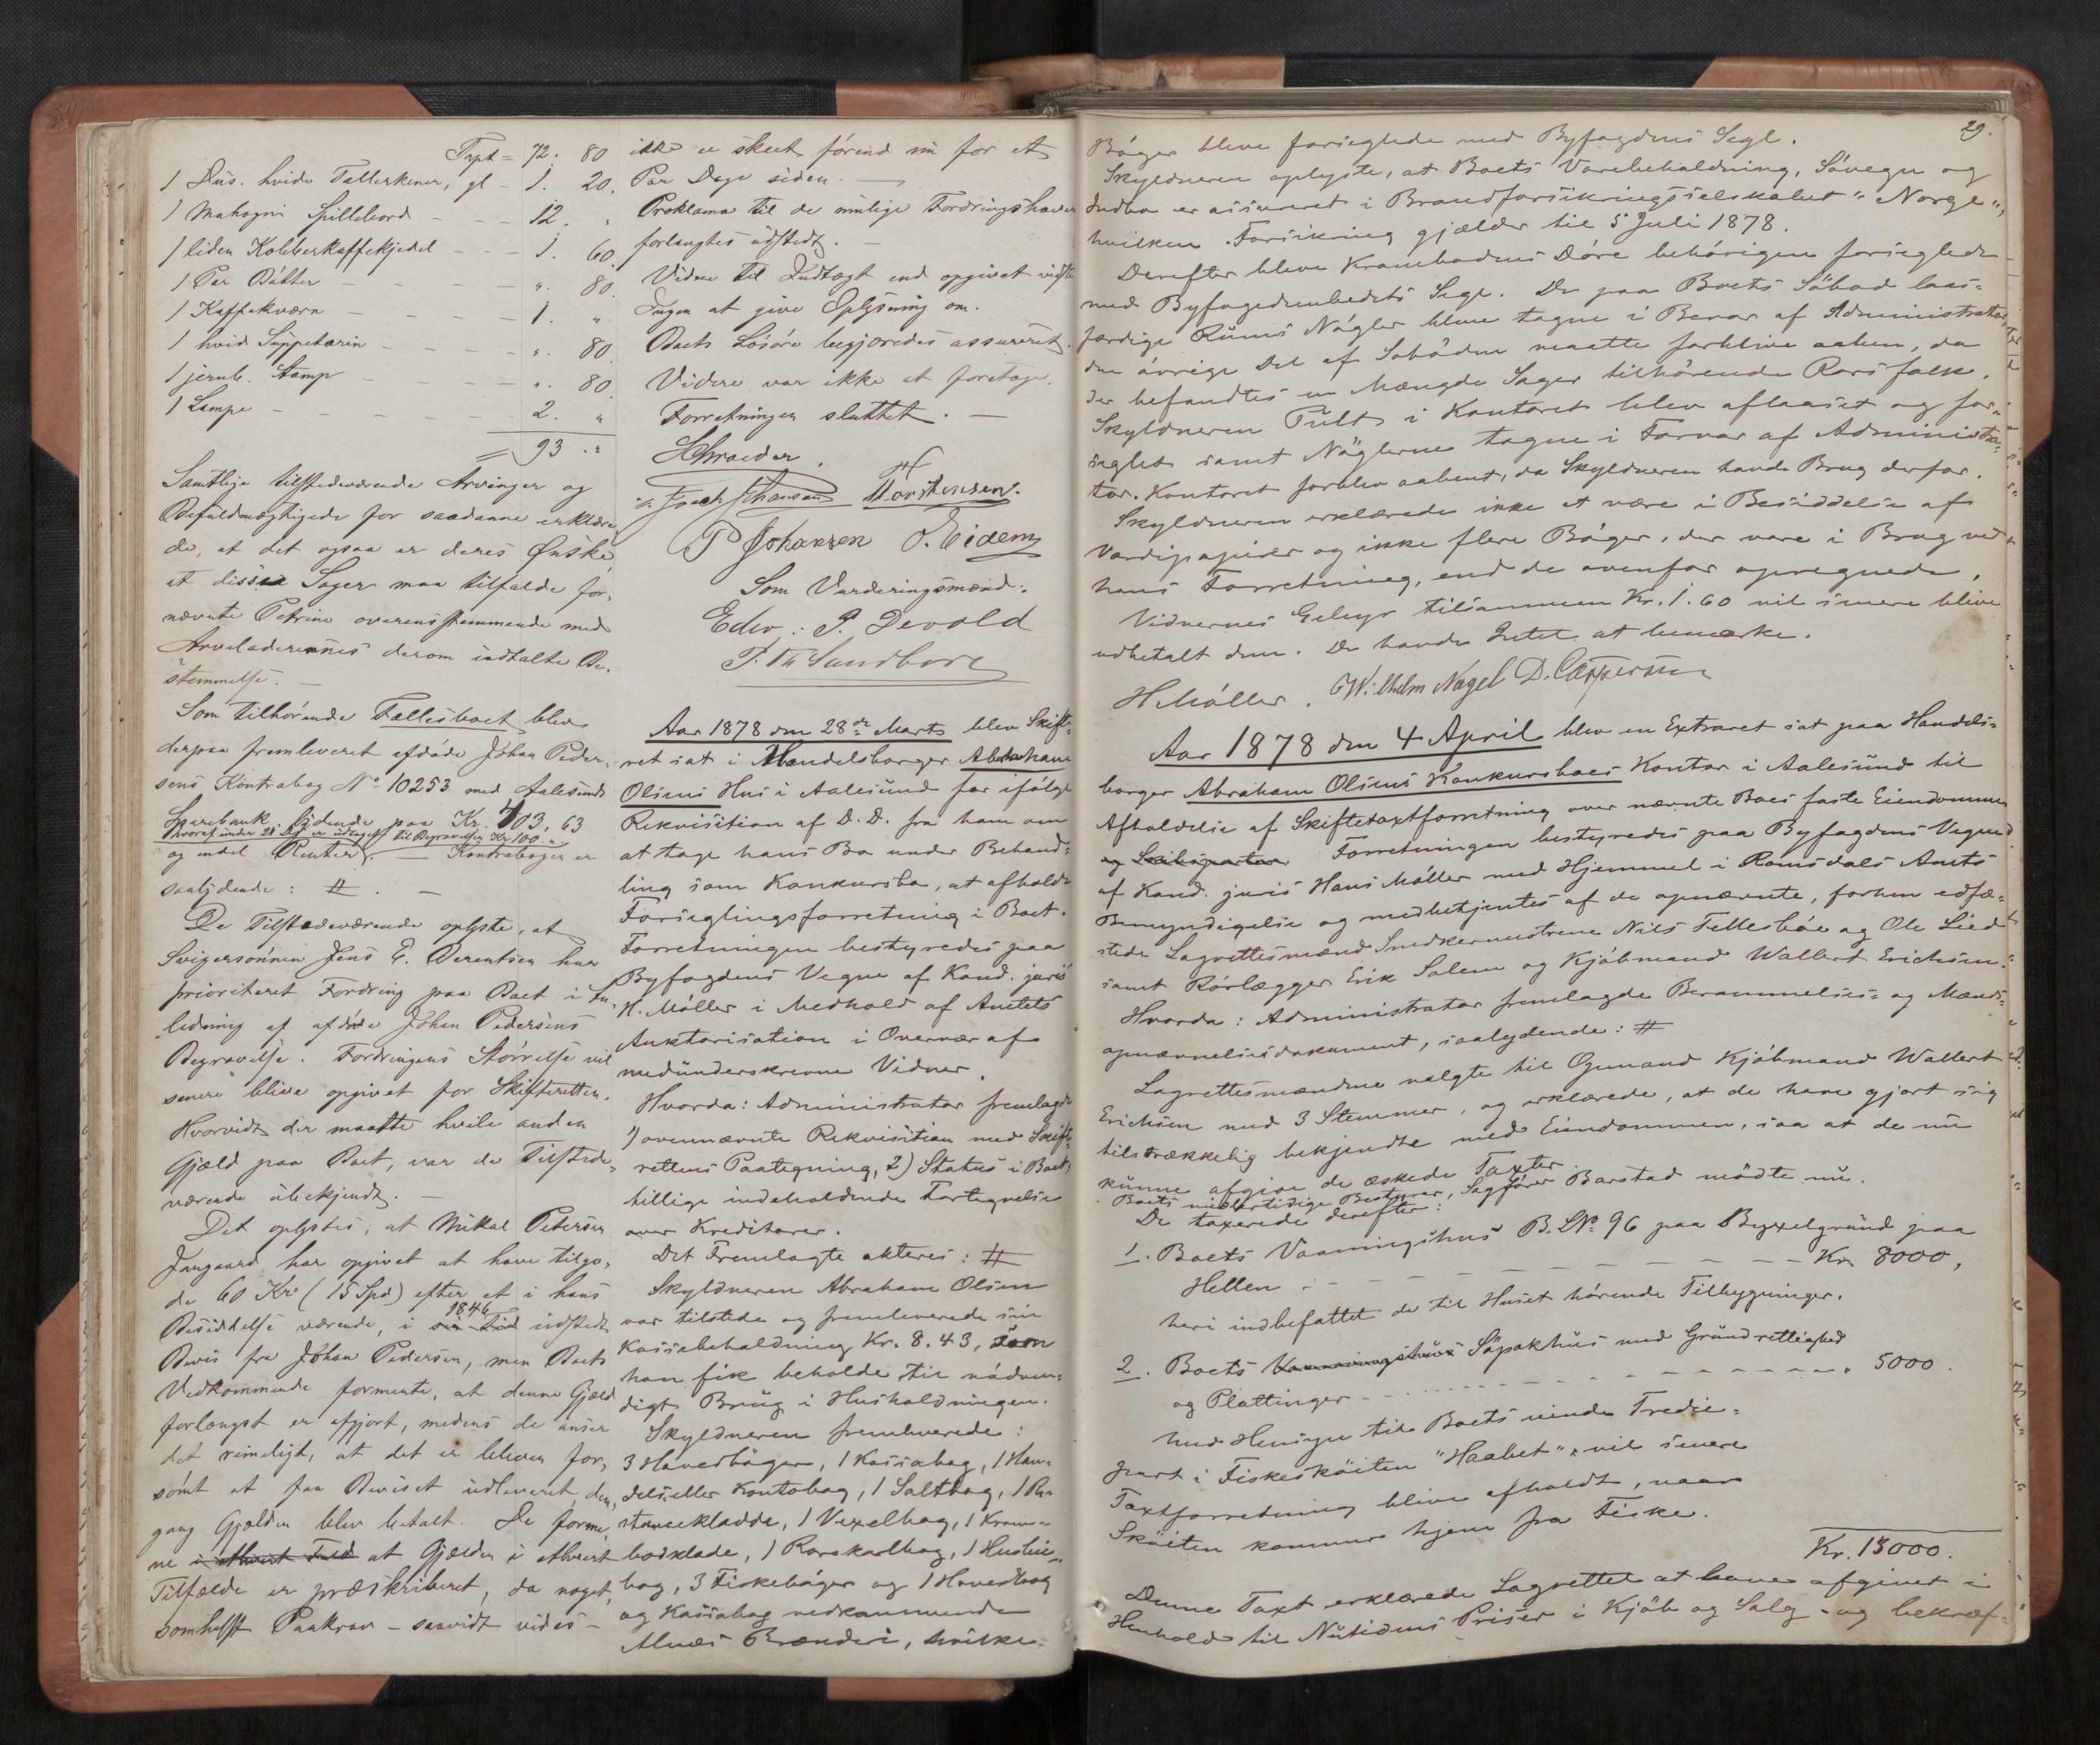 Trpt = 72. 80
1 Dus. hvide Tallerkener, gl - 1. 20.
1 Mahogni Spillebord - - - 12. "
1 liden Kobberkaffekjedel - - - 1. 60.
1 Par Bøtter - - - - - ". 80.
1 Kaffekværn - - - - - 1. "
1 hvid Suppeterin - - - - ". 80.
1 jernb. Stamp - - - - - ". 80.
1 Lampe - - - - - - 2. "
= 93 . "
Samtlige tilstedeværende Arvinger og
Befuldmægtigede for saadanne erklære
de, at det ogsaa er deres Ønske,
at disse Sager maa tilfalde for,
nævnte Petrine overensstemmende med
Arveladerinnes derom indtalte Be,
stemmelse. —
Som tilhørende Fællesboet blev
derpaa fremleveret afdøde Johan Peder,
sens Kontrabog No 10253 med Aalesunds
Sparebank lydende paa Kr. 103, 63
hvoraf under 21 er udtaget til Begravelse Kr. 100. "
og endel Renter. — Kontrabogen er
saalydende: # . —
De Tilstedeværende oplyste, at
Svigersønnen Jens E. Berentsen har
prioriteret Fordring paa Boet i An,
ledning af afdøde Johan Pedersens
Begravelse. Fordringens Størrelse vil
senere blive opgivet for Skifteretten.
Hvorvidt der maatte hvile anden
Gjæld paa Boet, var de Tilstede,
værende ubekjendt. —
Det oplystes, at Mikal Petersen
Jangaard har opgivet at have tilgo,
de 60 Kr (15 Spd) efter et i hans
Besiddelse værende, i sin Tid 1846 udstedt
Bevis fra Johan Pedersen, men Boets
Vedkommende formente, at denne Gjæld
forlængst er afgjort, medens de anser
det rimeligt, at det er bleven for,
sømt at faa Beviset udleveret, den,
gang Gjælden blev betalt. De forme,
ne i ethvert Fald at Gjælden i ethvert
Tilfælde er præskriberet, da noget,
somhelst Paakrav – saavidt vides –
ikke er skeet førend nu for et
Par Dage siden. —
Proklama til de mulige Fordringshavere
forlangtes udstedt. —
Videre til Indtægt end opgivet vidste
Ingen at give Oplysning om.
Boets Løsøre begjæredes assureret.
Videre var ikke at foretage.
Forretningen sluttet. —
HSchroeder.
P Johansen O. Eidem
Som Vurderingsmænd:
Edw: P. Devold
P. Th Sandborg
Aar 1878 den 28de Marts blev Skifte-
ret sat i Handelsborger Abraham
Olsens Hus i Aalesund for ifølge
Rekvisition af D. D. fra ham om
at tage hans Bo under Behand-
ling som Konkursbo, at afholde
Forseglingsforretning i Boet.
Forretningen bestyredes paa
Byfogdens Vegne af Kand. juris
H. Møller i Medhold af Amtets
Auktorisation i Overvær af
medunderskrevne Vidner.
Hvorda: Administrator fremlagde
1) ovennævnte Rekvisition med Skifte-
rettens Paategning, 2) Status i Boet,
tillige indeholdende Fortegnelse
over Kreditorer.
Det Fremlagte akteres: #
Skyldneren Abraham Olsen
var tilstede og fremleverede sin
Kassebeholdning Kr. 8.43, som
han fik beholde til nødven-
digt Brug i Husholdningen.
Skyldneren fremleverede:
3 Hovedbøger, 1 Kassabog, 1 Han-
dels eller Kontobog, 1 Saltbog, 1 Re-
stancekladde, 1 Vexelbog, 1 Kram-
bodklade, 1 Rorskarlbog, 1 Husleie-
bog, 3 Fiskebøger og 1 Hovedbog
og Kassabog vedkommende
Alnæs Brænderi, hvilke
29.
Bøger bleve forseglede med Byfogdens Segl.
Skyldneren oplyste, at Boets Varebeholdning, Søvegn og
Indbo er assureret i Brandforsikringsselskabet "Norge",
hvilken Forsikring gjælder til 5 Juli 1878.
Derefter bleve Krambodens Døre behørigen forseglede
med Byfogedembedets Segl. De paa Boets Søbod laas-
færdige Rums Nøgler bleve tagne i Bevar af Administrator,
den øvrige Del af Søboden maatte forblive aaben, da
der befandtes en Mængde Sager tilhørende Rorsfolk.
Skyldneren Pult i Kontoret blev aflaaset og for-
seglet samt Nøglerne tagne i Forvar af Administra-
tor. Kontoret forblev aabent, da Skyldneren havde Brug derfor.
Skyldneren erklærede ikke at være i Besiddelse af
Værdipapirer og ikke flere Bøger, der vare i Brug ved
hans Forretning, end de ovenfor opregnede.
Vidnernes Gebyr tilsammen Kr. 1.60 vil senere blive
udbetalt dem. De havde Intet at bemærke.
H Møller. Wilhelm Nagel D. Caspersen
Aar 1878 den 4 April blev en Extraret sat paa Handels-
borger Abraham Olsens Konkursboes Kontor i Aalesund til
Afholdelse af Skiftetaxtforretning over nævnte Boes faste Eiendomme
og Skibsparter Forretningen bestyredes paa Byfogdens Vegne
af Kand. juris Hans Møller med Hjemmel i Romsdals Amts
Bemyndigelse og medbetjentes af de opnævnte, forhen edfæ-
stede Lagrettesmænd Snedkermestrene Nils Fellesbøe og Ole Lied
samt Rørlægger Erik Salem og Kjøbmand Wallert Erichsen.
Hvorda: Administrator fremlagde Berammelses- og Mænds-
opnævnelsesdokument, saalydende: #
Lagrettesmændene valgte til Ogmand Kjøbmand Wallert
Erichsen med 3 Stemmer, og erklærede, at de have gjort sig
tilstrækkelig bekjendte med Eiendommen, saa at de nu
kunne afgive de æskede Taxter.
Boets midlertidige Bestyrer, Sagfører Barstad mødte nu.
De taxerede derefter:
1. Boets Vaaningshus B. No 96 paa Byxelgrund paa
Hellen - - - - - - - - - - - Kr. 8000,
heri indbefattet de til Huset hørende Tilbygninger.
2. Boets Vaaningshus Søpakhus med Grundrettighed
og Plattinger - - - - - - - - - - " 5000.
Med Hensyn til Boets eiende Tredie-
part i Fiskeskøiten "Haabet", vil senere
Taxtforretning blive afholdt, naar
Skøiten kommer hjem fra Fiske.
Kr. 13000.
Denne Taxt erklærede Lagrettet at have afgivet i
Henhold til Nutidens Priser i Kjøb og Salg - og bekræf-